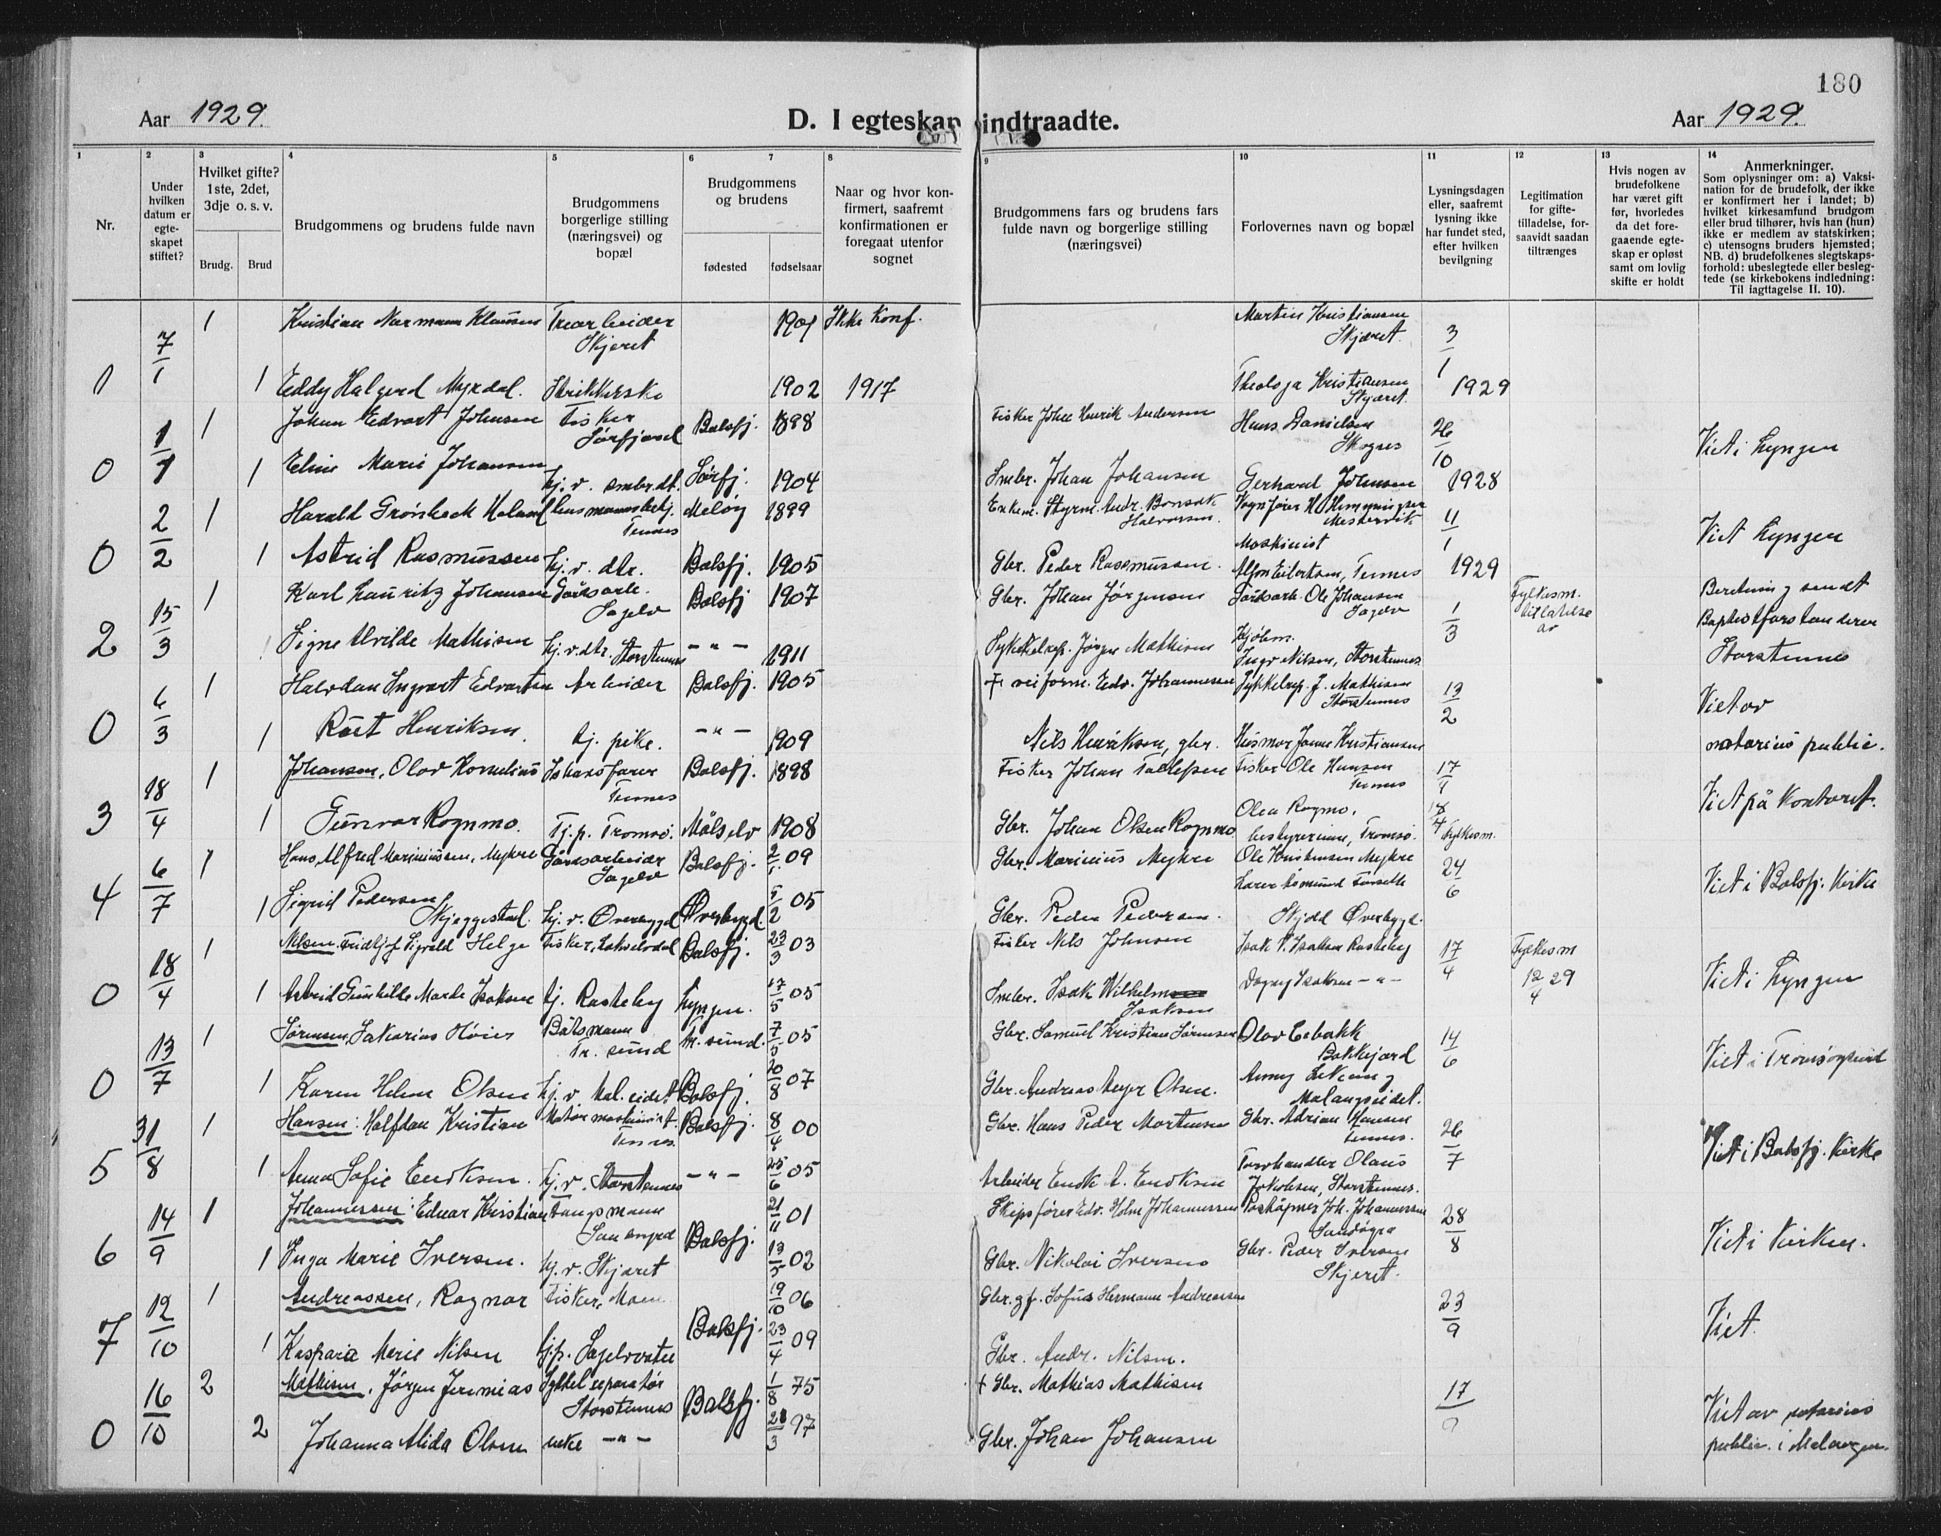 180
Aar 1929.
D. I egteskap indtraadte.
Aar 1929.
1
2
3
4
5
6
7
8
9
10
11
12
13
14
Nr.
Under hvilken datum er egte-skapet stiftet?
Hvilket gifte? 1ste, 2det, 3dje o. s. v.
Brudg.
Brud
Brudgommens og brudens fulde navn
Brudgommens borgerlige stilling (næringsvei) og bopæl
Brudgommens og brudens
fødested
fødselsaar
Naar og hvor kon-firmert, saafremt konfirmationen er foregaat utenfor sognet
Brudgommens fars og brudens fars fulde navn og borgerlige stilling (næringsvei)
Forlovernes navn og bopæl
Lysningsdagen eller, saafremt lysning ikke har fundet sted, efter hvilken bevilgning
Legitimation for gifte-tilladelse, for-saavidt saadan tiltrænges
Hvis nogen av brudefolkene har været gift før, hvorledes da det fore-gaaende egte-skap er opløst samt om lovlig skifte er holdt
Anmerkninger.
Som oplysninger om: a) Vaksi-nation for de brudefolk, der ikke er konfirmert her i landet; b) hvilket kirkesamfund brudgom eller brud tilhører, hvis han (hun) ikke er medlem av statskirken; c) utensogns bruders hjemsted; NB. d) brudefolkenes slegtskaps-forhold: ubeslegtede eller besleg-tede (se kirkebokens indledning: Til iagttagelse II. 10).
7/1 1 Kristian Normann Klausen Trearbeider Skjæret 1901 Ikke Konf. Martin Kristiansen Skjæret. 3/1
1 1 Eddy Halgerd Myrdal. Strikkerske 1902 1917 Kristiansen Skjæret. 1929
1/1 1 Johan Edvart Johnsen Fisker Sørfjord Balsfj. 1898 Fisker Johan Henrik Andersen Hans Danielsen Skognes 26/10
0 1 Eline Marie Johansen hj. v. smbr.dt. Sørfj. 1904 Smbr. Johan Johansen Gerhard Johnsen 1928 Viet i Lyngen
2/2 1 Harald Grønbeck Lensmannsbetj. Tennes Meløy 1899 Styrm. Andr. Halvorsen. Vognfører Hemmingsen Mestervik 4/1
0 1 Astrid Rasmussen hj. v. dtr. Balsfj. 1905 Gbr. Peder Rasmussen. Maskinist Alfon Eilertsen, Tennes 1929 Viet Lyngen
15/3 1 Karl Lauritz Johansen Gårdsarb. Sagelv Balsfj 1907 Gbr. Johan Jørgensen Gårdsarb. Ole Johansen Sagelv 1/3 Fylkesm. tillatelse av Beretning sendt
2 Signe Alvilde Mathisen hj. v. dtr. Storstennes - " - 1911 Sykkelrep. Jørgen Mathisen Ingv. Nilsen, Storstennes Baptistforstanderen Storstennes
6/3 1 Halvdan Ingvart Edvartsen Arbeider Balsfj. 1905 + veiform. Edv. Johannesen Sykkelrep. J. Mathisen Storstennes 13/2
0 1 Henriksen. hj. pike. - " - 1909 Nils Henriksen, gbr. Kristiansen Viet av notarius public.
18/4 1 Johansen, Olav Kornelius Balsfj. 1898 Fisker Johan Fisker Ole Hansen Tennes 17/
3 1 Gunvor Rognmo. Tj. p. Tromsø. Målselv 1908 Gbr. Johan Olsen Rognmo Olea Rognmo, bestyrerinne, Tromsø. 18/4 Fylkesm. Viet på Kontoret.
6/7 1 Hans Alfred Mariniussen, Mykre Gårdsarbeider Sagelv Balsfj. 2/1 09 Gbr. Marinius Mykre Ole Kristensen Mykre 24/6
4 1 Sigrid Pedersen Skjeggestad. hj. v. Øverbygd Øverbygd. 5/2 05 Gbr. Peder Pedersen. Lærer Åsmund Skjold Øverbygd. Viet i Balsfj. Kirke
18/4 1 Nilsen Fridtjof Sigvald Helge Fisker, Lakselvdal Balsfj. 23/3 03 Fisker Nils Johnsen Isak V. Isaksen Rasteby 17/4 Fylkesm 12/4 29
0 1 Astrid Gunhilde Marta Isaksen hj. Rasteby Lyngen. 17/5 05 Smbr. Isak Wilhelm Isaksen Dagny Isaksen - " - Viet i Lyngen
13/7 1 Sørensen, Sakarias Høier Båtsmann Tr. sund Tr. sund. 7/5 05 Gbr. Samuel Kristian Sørensen Olav Bakkejord 14/6
0 1 Karen Helene Olsen hj. v. Mal. eidet Balsfj. 20/8 07 Gbr. Andreas Meyer Olsen. Malangseidet. Viet i Tromsøysund
31/8 1 Hansen: Halfdan Kristian Motormaskinist. Tennes Balsfj. 8/4 00 Gbr. Hans Peder Mortensen Gbr. Adrian Hansen Tennes. 26/7
5 1 Anna Sofie Eriksen. hj. v. Storstennes - " - 25/6 05 Arbeider Erik A. Eriksen Olaus Jakobsen, Storstennes. Viet i Balsfj. Kirke
14/9 1 Johannessen: Ednar Kristian Fangsmann Balsfj. 21/11 01 Skipsfører Edv. Holm Johannessen Poståpner Joh. Johannessen Sandøyra 28/8
6 1 Inga Marie Iversen. hj. v. Skjæret 13/5 02 Gbr. Nikolai Iversen Gbr. Peder Iversen Skjæret. Viet i Kirken.
12/10 1 Andreassen, Ragnar Fisker, Moen Balsfj. 19/10 06 Gbr. gf. Sofus Hermann Andreassen 23/9
7 1 Kaspara Marie Nilsen hj. p. Sagelvvatn 23/4 09 Gbr. Andr. Nilsen. Viet.
16/10 2 Mathisen, Jørgen Jeremias Sykkelreparatør Storstennes Balsfj. 1/8 75 + Gbr. Mathias Mathisen 17/9
0 2 Johanna Alida Olsen enke - " - 21/3 97 Gbr. Johan Johansen Viet av notarius public. i Malangen.